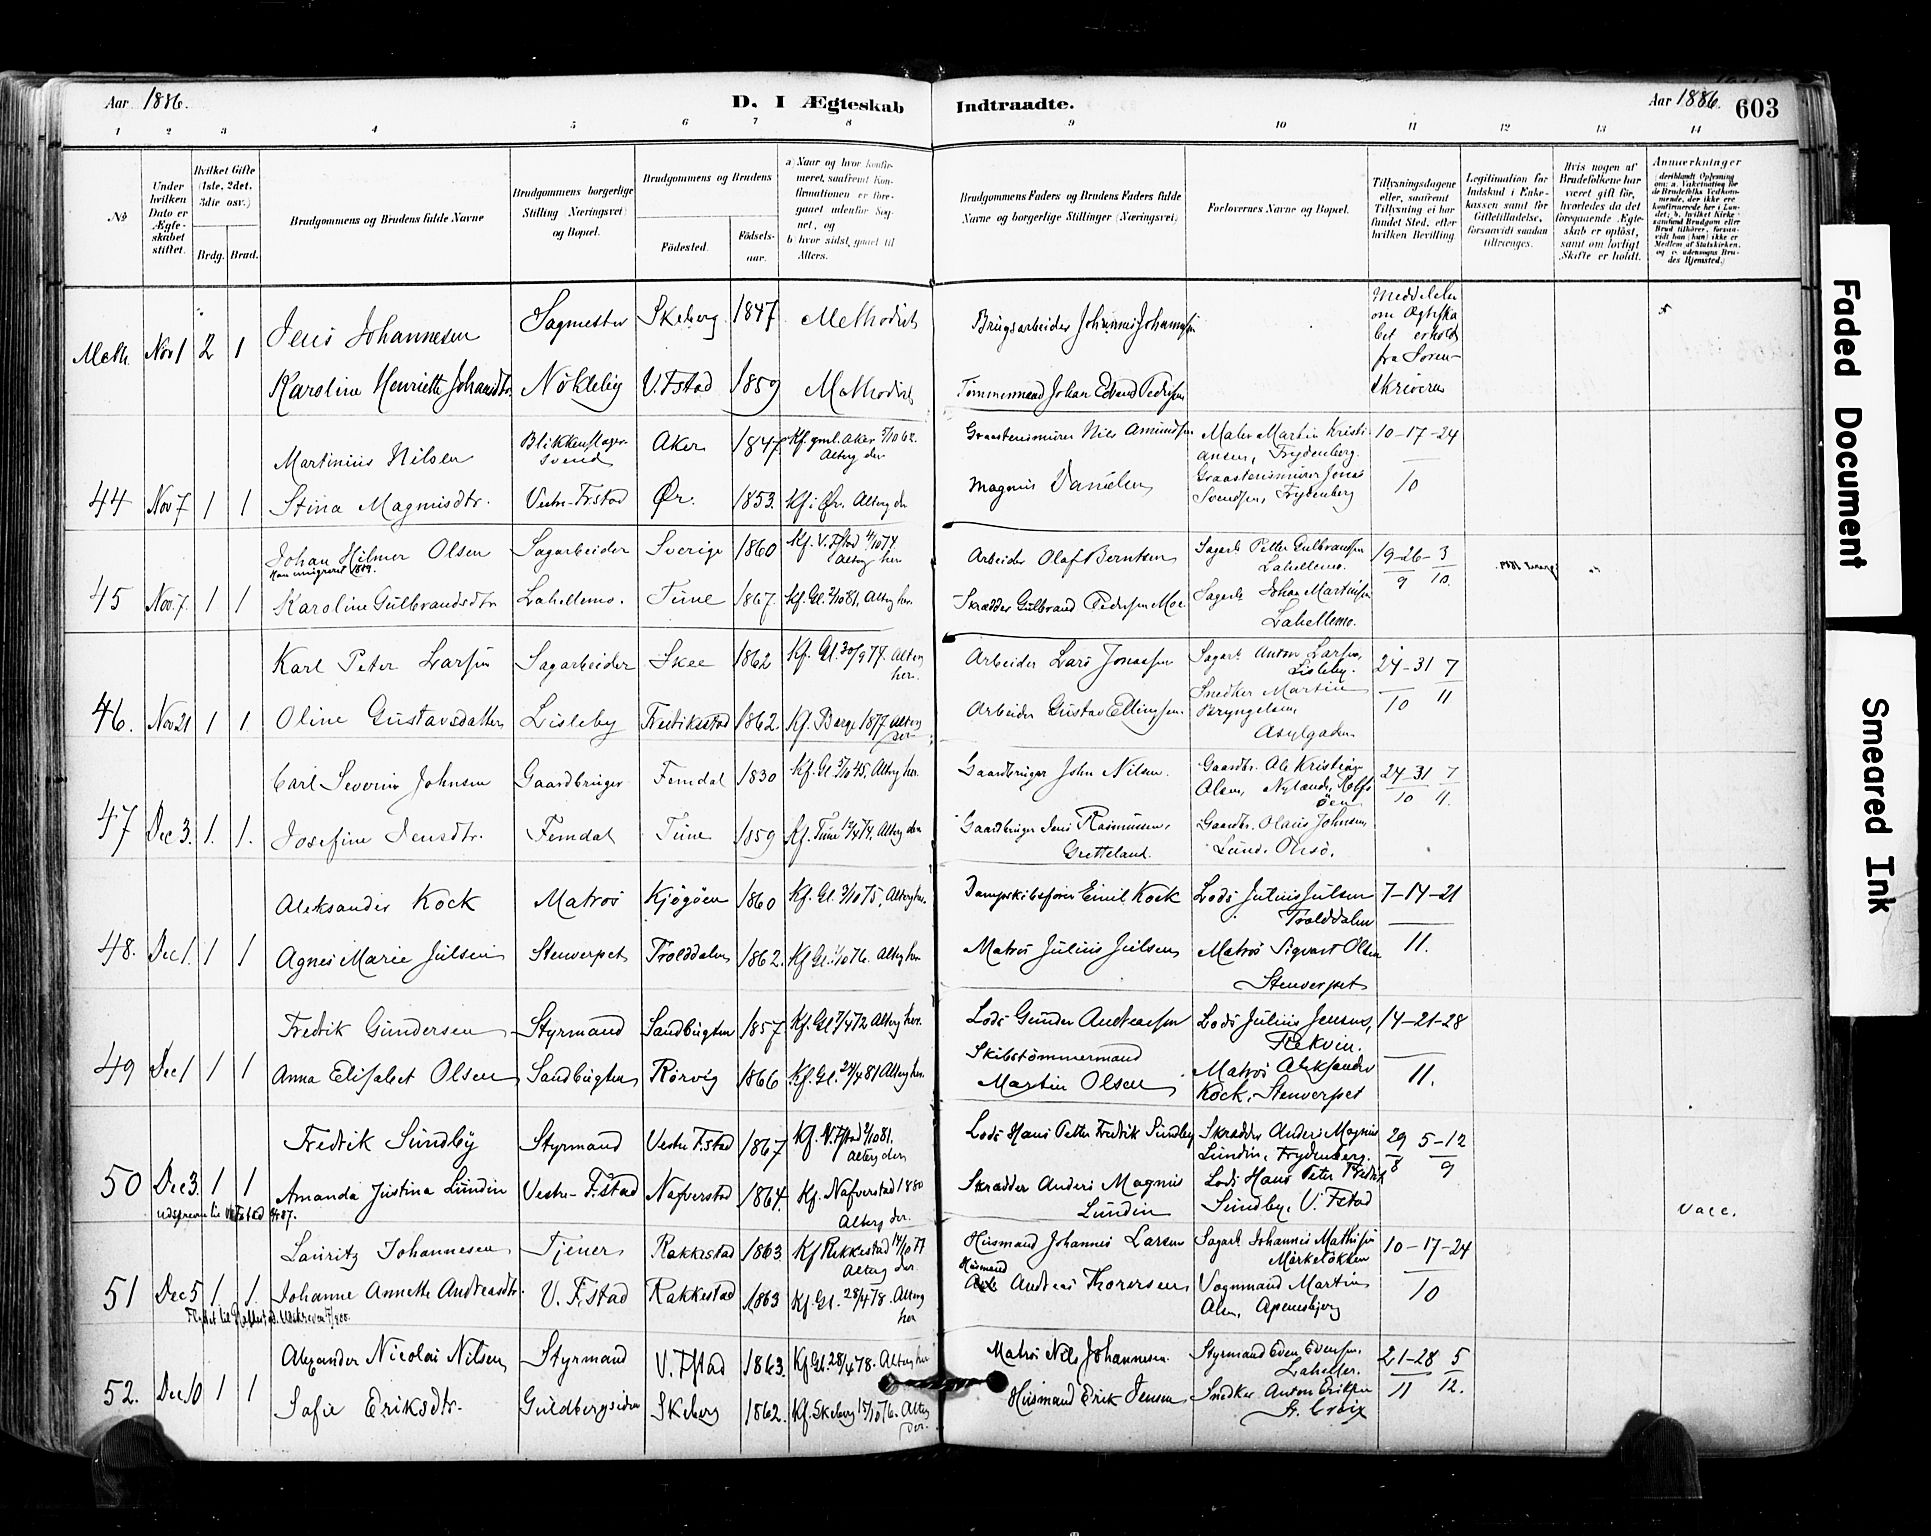 Aar 1886.
D. I Ægteskab Indtraadte.
Aar 1886. 603
1 2 3 4 5 6 7 8 9 10 11 12 13 14
№
Under hvilken Dato er Ægteskabet stiftet.
Hvilket Gifte (1ste, 2det, 3die osv.)
Brdg. Brud.
Brudgommens og Brudens fulde Navne
Brudgommens borgerlige Stilling (Næringsvei) og Bopæl.
Brudgommens og Brudens
Födested. Födselsaar.
a) Naar og hvor konfirmeret, saafremt Konfirmationen er foregaaet udenfor Sognet, og
b) hvor sidst gaaet til Alters.
Brudgommens Faders og Brudens Faders fulde Navne og borgerlige Stillinger (Næringsvei)
Forlovernes Navne og Bopæl.
Tillysningsdagene eller, saafremt Tillysning ei har fundet Sted, efter hvilken Bevilling
Legitimation for Indskud i Enkekassen samt for Giftetilladelse, forsaavidt saadan tiltrænges.
Hvis nogen af Brudefolkene har været gift før, hvorledes da det foregaaende Ægteskab er oplöst, samt om lovligt Skifte er holdt.
Anmærkninger
Meth. Nov 1 2 1
Jens Johannesen Sagmester Skeberg 1847 Methodist Brugsarbeider Johannes Johannesen
Meddelelse om Ægteskabet erholdt fra Sorenskriveren
Karoline Henriette Johansdtr. Nökleby V. Fstad 1859 Methodist Tömmermand Johan Edvard Pedersen
Martinius Nilsen Blikkenslager Svend Aker 1847 Kf. gml. Aker 5/10 62. Alterg der Graastensmurer Nils Amundsen Maler Martin Kristiansen, Frydenberg. 10-17-24
44 Nov 7 1 1 Stina Magnusdtr. Vestre-Fstad Ør. 1853. Kf. i Ør. Alterg der Magnus Danielsen Graastensmurer Jonas Svendsen, Frydenberg 10
Johan Hilmer Olsen Sagarbeider Sverige 1860 Kf. V. Fstad 4/10 74 Alterg her Arbeider Olaf Berntsen Sagarb. Petter Gulbrandsen Lahellemo. 19-26 3
45 Nov 7. 1 1 Karoline Gulbrandsdtr Lahellemo. Tune 1867. Kf. Gl. 2/10 81. Alterg her. Skrædder Gulbrand Pedersen Moe. Sagarb. Johan Martinsen Lahellemo. 9 10.
Karl Peter Larsen Sagarbeider Skee 1862 Kf. Gl. 30/9 77. Alterg her. Arbeider Lars Jonassen Sagarb. Anton Larsen, Lisleby. 24-31 7
46. Nov 21 1 1 Oline Gustavsdatter Lisleby Fredrikstad 1862. Kf. Borge 1877 Alterg der Arbeider Gustav Ellingsen. Snedker Martin Bryngelsen, Asylgaden 10 11
Carl Severin Johnsen Gaardbruger Femdal 1830 Kf. Gl. 5/10 45, Alterg her. Gaardbruger John Nilsen. Gaardbr. Ole Kristian Olsen, Nylænde, Rolfsöen 24-31 7
47 Dec 3. 1. 1. Josefine Jensdtr. Femdal Tune 1859 Kf. Tune 12/4 74. Alterg den Gaardbruger Jens Rasmussen, Gretteland. Gaardbr. Olaus Johnsen, Lunde, Onsö. 10 11.
Aleksander Kock Matros Kjøgöen 1860 Kf. Gl. 3/10 75, Alterg her. Dampskibsförer Emil Kock Lods Julius Julsen Trolddalen 7-14-21
48. Dec 1. 1 1 Agnes Marie Julsen Stenverpet Trolddalen 1862. Kf Gl. 1/10 76. Alterg her Matros Julius Julsen Matros Sigvart Olsen Stenverpet 11.
Fredrik Gundersen Styrmand Sandbugten 1857. Kf. Gl 7/4 72 Alterg her. Lods Gunder Andreassen Lods Julius Jensen, Rekvin. 14-21-28
49 Dec 1 1 1 Anna Elisabet Olsen Sandbugten Rörvig 1866 Kf. Gl. 24/4 81 Alterg her. Skibstömmermand Martin Olsen Matros Aleksander Kock, Stenverpet 11.
Fredrik Sundby Styrmand Vestre Fstad 1867 Kf. V. Fstad 2/10 81. Alterg den Lods Hans Petter Fredrik Sundby Skrædder Anders Magnus Lundin, Frydenberg. 29 5-12
50 Dec 3. 1 1 Amanda Justina Lundin Vestre-Fstad Nafverstad 1864. Kf. Nafverstad 1880 Alterg der. Skrædder Anders Magnus Lundin Lods Hans Peter Fredrik Sundby, V. Fstad 8 9 Vacc.
Lauritz Johannesen Tjener Rakkestad 1863 Kf Rakkestad 14/10 77 Alterg der. Husmand Johannes Larsen Sagarb. Johannes Mathisen Mörkelökken 10-17-24
51 Dec 5 1. 1. Johanne Annette Andreasdtr. V. Fstad Rakkestad 1863 Kf. Gl. 28/4 78. Alterg her Husmand Andreas Thoresen Vognmand Martin Olsen, Apenesbjerg 10
Alexander Nicolai Nilsen Styrmand V. Fstad 1863. Kf Gl. 28/4 78. Alterg her Matros Nils Johannesen. Styrmand Eden Edensen, Laheller. 21-28 5
52. Dec 10 1 1 Sofie Eriksdtr. Guldbergsiden Skeberg 1862. Kf. Skeberg 15/10 76. Alterg der. Husmand Erik Jensen Snedker Anton Eriksen St. Croix 11 12.
Faded Document
Smeared Ink